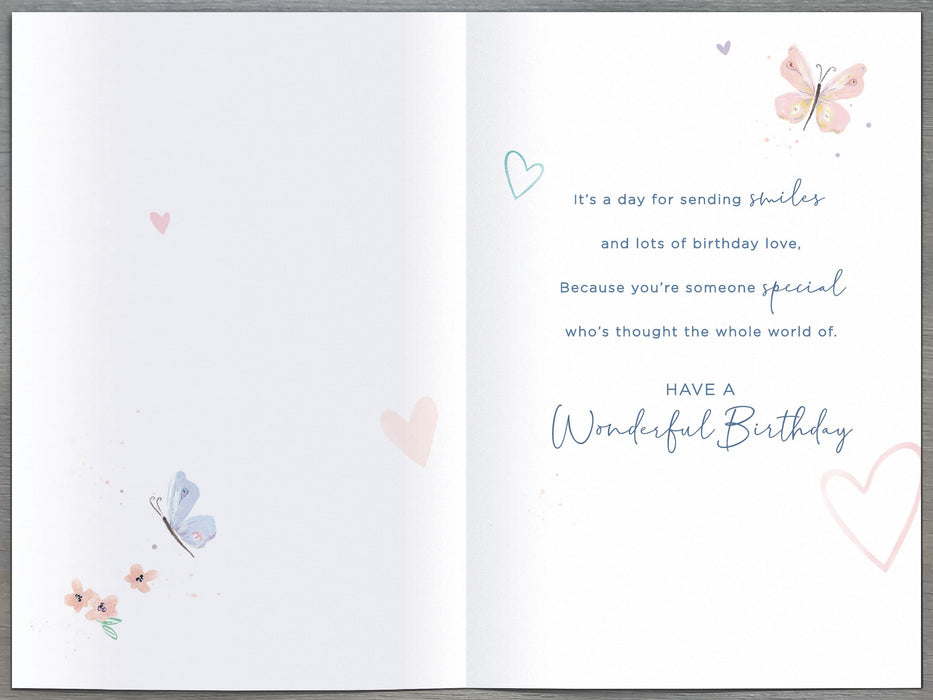 It's a day for sending smiles
and lots of birthday love,
Because you're someone special
who's thought the whole world of.
HAVE A
Wonderful Birthday